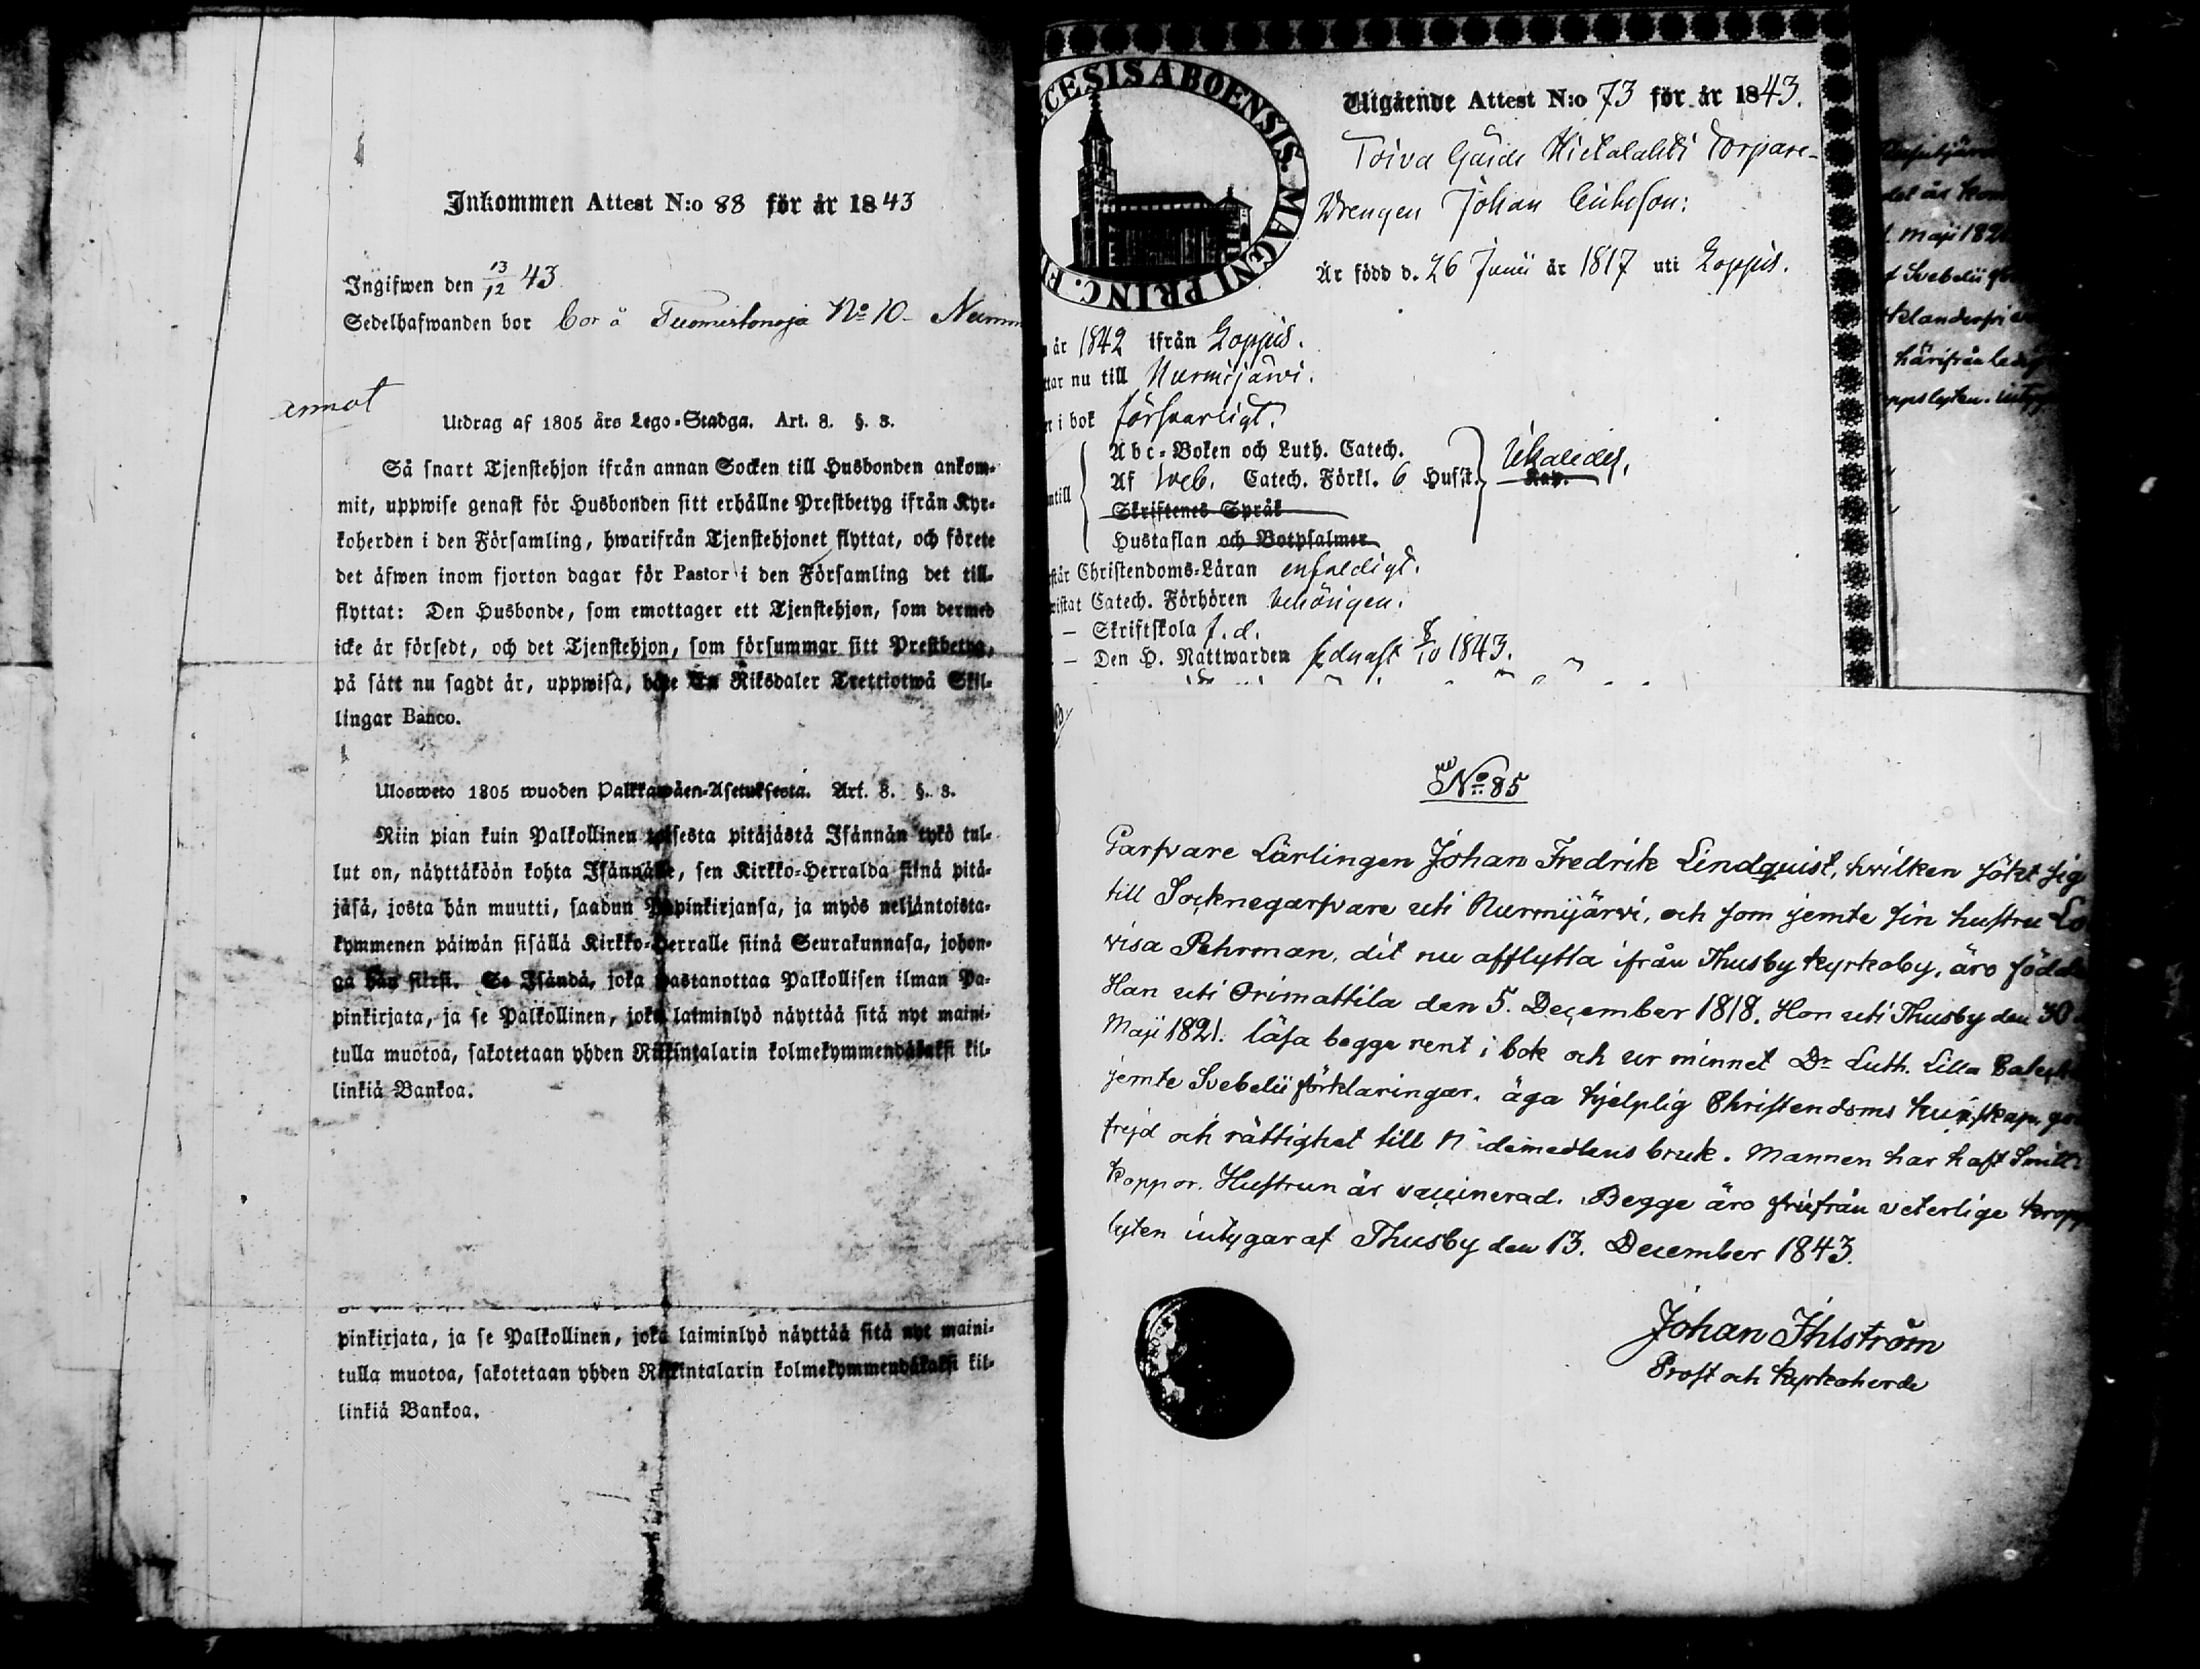 Inkommen Attest N:o 88 för år 1843
Ingifwen den 13/12 43
Sedelhafwanden bor bor å Tuomistonoja No 10 - Numm
Utdrag af 1805 års Lego-Stadga. Art. 8. §. 8.
Så snart Tjenstehjon ifrån annan Socken till Husbonden ankom-
mit, uppwise genast för Husbonden sitt erhållne Prestbetyg ifrån Kyr-
koherden i den Församling, hwarifrån Tjenstehjonet flyttat, och förete
det äfwen inom fjorton dagar för Pastor i den Församling det till-
flyttat: Den Husbonde, som emottager ett Tjenstehjon, som dermed
icke är försedt, och det Tjenstehjon, som försummar sitt Prestbetyg,
på sätt nu sagdt är, uppwisa, böte En Riksdaler Trettiotwå Skil-
lingar Banco.
Ulosweto 1805 wuoden Palkkawäen-Asetuksesta. Art. 8. §. 8.
Niin pian kuin Palkollinen toisesta pitäjästä Isännän tykö tul-
lut on, näyttäköön kohta Isännälle, sen Kirkko-Herralda siinä pitä-
jäsä, josta hän muutti, saadun Papinkirjansa, ja myös neljäntoista-
kymmenen päiwän sisällä Kirkko-Herralle siinä Seurakunnasa, johon-
ga hän siirsi. Se Isändä, joka wastanottaa Palkollisen ilman Pa-
pinkirjata, ja se Palkollinen, joka laiminlyö näyttää sitä nyt maini-
tulla muotoa, sakotetaan yhden Riikintalarin kolmekymmendäkaksi kil-
linkiä Bankoa.
pinkirjata, ja se Palkollinen, joka laiminlyö näyttää sitä nyt maini-
tulla muotoa, sakotetaan yhden Riikintalarin kolmekymmendäkaksi kil-
linkiä Bankoa.
CESIS ABOENSIS. MAGNI PRINC. FI
Utgående Attest N:o 73 för år 1843.
Toiva Hietalahti Torpare-
Drengen Johan
Är född d. 26 Junii år 1817 uti Loppis.
år 1842 ifrån Loppis.
ttar nu till Nurmijärvi.
i bok försvarligt.
Abc-Boken och Luth. Catech.
Af Sveb. Catech. Förkl. 6 Husst.
ntill
Skriftenes Språk
Hustaflan och Botpsalmer
står Christendoms-Läran enfaldigt.
wistat Catech. Förhören behörigen.
- Skriftskola f. d.
- Den H. Nattwarden sednast 8/10 1843.
No 85
Garfvare Lärlingen Johan Fredrik Lindquist, hvilken sökt sig
till Socknegarfvare uti Nurmijärvi, och som jemte sin hustru Lo
visa Pehrman, dit nu afflytta ifrån Thusby kyrkoby, äro födde
Han uti Orimattila den 5. December 1818. Hon uti Thusby den 30
Maji 1821. läsa begge rent i bok och ur minnet Dr Luth. Lilla
jemte Svebelii förklaringar, äga hjelplig Christendoms kunskap, go
frejd och rättighet till Nådemedlens bruk. Mannen har haft Smitt-
koppor. Hustrun är vaccinerad. Begge äro fri ifrån veterlige kropps
lyten intygar af Thusby den 13. December 1843.
Johan Ihlström
Prost och kyrkoherde